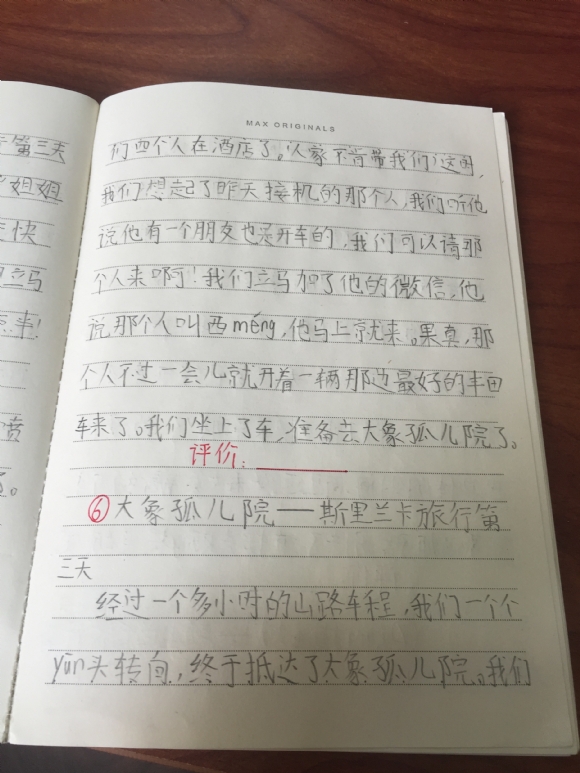 MAX ORIGINALS
第三天
姐姐
快
立马
点半!
喷
。
们四个人在酒店了。人家不肯带我们,这时,
我们想起了昨天接机的那个人,我们听他
说他有一个朋友也是开车的,我们可以请那
个人来啊!我们立马加了他的微信,他
说那个人叫西méng,他马上就来。果真,那
个人不过一会儿就开着一辆那边最好的丰田
车来了。我们坐上了车,准备去大象孤儿院了。
评价:
⑥大象孤儿院——斯里兰卡旅行第
三天
经过一个多小时的山路车程,我们一个个
yūn头转向,终于抵达了大象孤儿院。我们